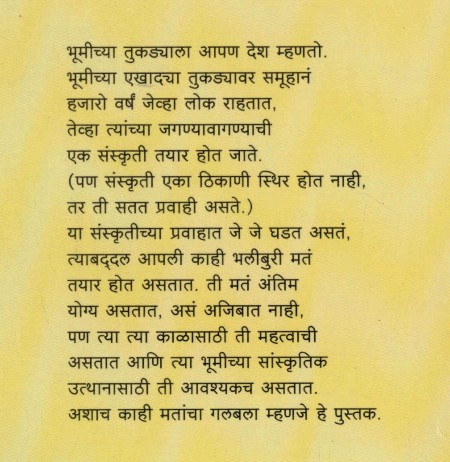 भूमीच्या तुकड्याला आपण देश म्हणतो.
भूमीच्या एखाद्या तुकड्यावर समूहानं
हजारो वर्षं जेव्हा लोक राहतात,
तेव्हा त्यांच्या जगण्यावागण्याची
एक संस्कृती तयार होत जाते.
(पण संस्कृती एका ठिकाणी स्थिर होत नाही,
तर ती सतत प्रवाही असते.)
या संस्कृतीच्या प्रवाहात जे जे घडत असतं,
त्याबद्दल आपली काही भलीबुरी मतं
तयार होत असतात. ती मतं अंतिम
योग्य असतात, असं अजिबात नाही,
पण त्या त्या काळासाठी ती महत्वाची
असतात आणि त्या भूमीच्या सांस्कृतिक
उत्थानासाठी ती आवश्यकच असतात.
अशाच काही मतांचा गलबला म्हणजे हे पुस्तक.